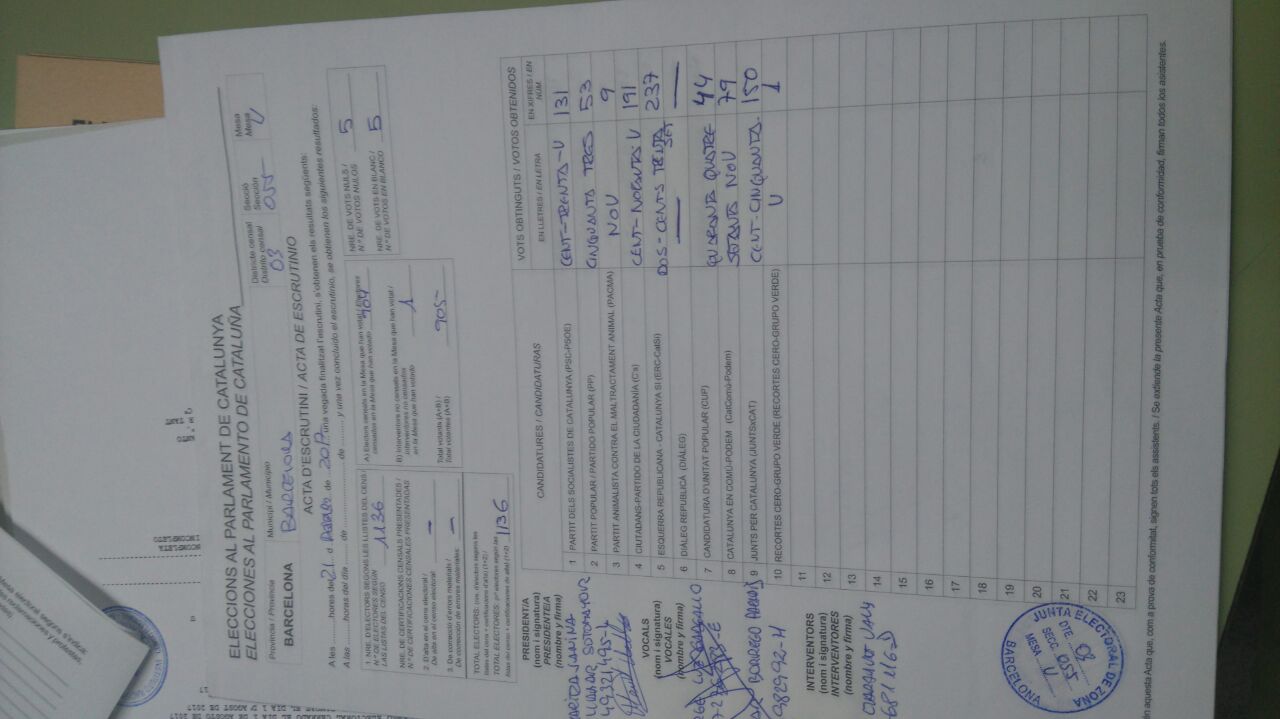 ELECCIONS AL PARLAMENT DE CATALUNYA
ELECCIONES AL PARLAMENTO DE CATALUÑA
Província / Provincia
BARCELONA
Municipi / Municipio
BARCELONA
Districte censal
Distrito censal
03
Secció
Sección
055
Mesa
Mesa
U
ACTA D'ESCRUTINI / ACTA DE ESCRUTINIO
A les hores de 21 d de 2017 una vegada finalitzat l'escrutini, s'obtenen els resultats següents:
A las horas del día de de y una vez concluido el escrutinio, se obtienen los siguientes resultados:
1. NRE. D'ELECTORS SEGONS LES LLISTES DEL CENS /
Nº DE ELECTORES SEGÚN
LAS LISTAS DEL CENSO
1136
NRE. DE CERTIFICACIONS CENSALS PRESENTADES /
Nº DE CERTIFICACIONES CENSALES PRESENTADAS
2. D'alta en el cens electoral /
De alta en el censo electoral:
—
3. De correcció d'errors materials /
De corrección de errores materiales:
—
1136
A) Electors censats en la Mesa que han votat / Electores
censados en la Mesa que han votado
904
B) Interventors no censats en la Mesa que han votat /
Interventores no censados
en la Mesa que han votado
1
Total votants (A+B) /
Total votantes (A+B)
905-
NRE. DE VOTS NULS /
Nº DE VOTOS NULOS
5
NRE. DE VOTS EN BLANC /
Nº DE VOTOS EN BLANCO
5
CANDIDATURES / CANDIDATURAS
VOTS OBTINGUTS / VOTOS OBTENIDOS
EN LLETRES / EN LETRA
EN XIFRES / EN NÚM.
1 PARTIT DELS SOCIALISTES DE CATALUNYA (PSC-PSOE) CENT-TRENTA-U 131
2 PARTIT POPULAR / PARTIDO POPULAR (PP) CINQUANTA TRES 53
3 PARTIT ANIMALISTA CONTRA EL MALTRACTAMENT ANIMAL (PACMA) NOU 9
4 CIUTADANS-PARTIDO DE LA CIUDADANÍA (C's) CENT-NORANTA U 191
5 ESQUERRA REPUBLICANA - CATALUNYA SÍ (ERC-CatSí) DOS-CENTS TRENTA SET 237
6 DIÀLEG REPUBLICÀ (DIÀLEG) — —
7 CANDIDATURA D'UNITAT POPULAR (CUP) QUARANTA QUATRE 44
8 CATALUNYA EN COMÚ-PODEM (CatComú-Podem) SETANTA NOU 79
9 JUNTS PER CATALUNYA (JUNTSxCAT) CENT-CINQUANTA- 150
10 RECORTES CERO-GRUPO VERDE (RECORTES CERO-GRUPO VERDE) U 1
11
12
13
14
15
16
17
18
19
20
21
22
23
PRESIDENT/A
(nom i signatura)
PRESIDENTE/A
(nombre y firma)
VOCALS
(nom i signatura)
VOCALES
(nombre y firma)
BORREGO
INTERVENTORS
(nom i signatura)
INTERVENTORES
(nombre y firma)
JUNTA ELECTORAL DE ZONA
BARCELONA
DTE. 03
SECC. 055
MESA U
en aquesta Acta que, com a prova de conformitat, signen tots els assistents. / Se extiende la presente Acta que, en prueba de conformidad, firman todos los asistentes.